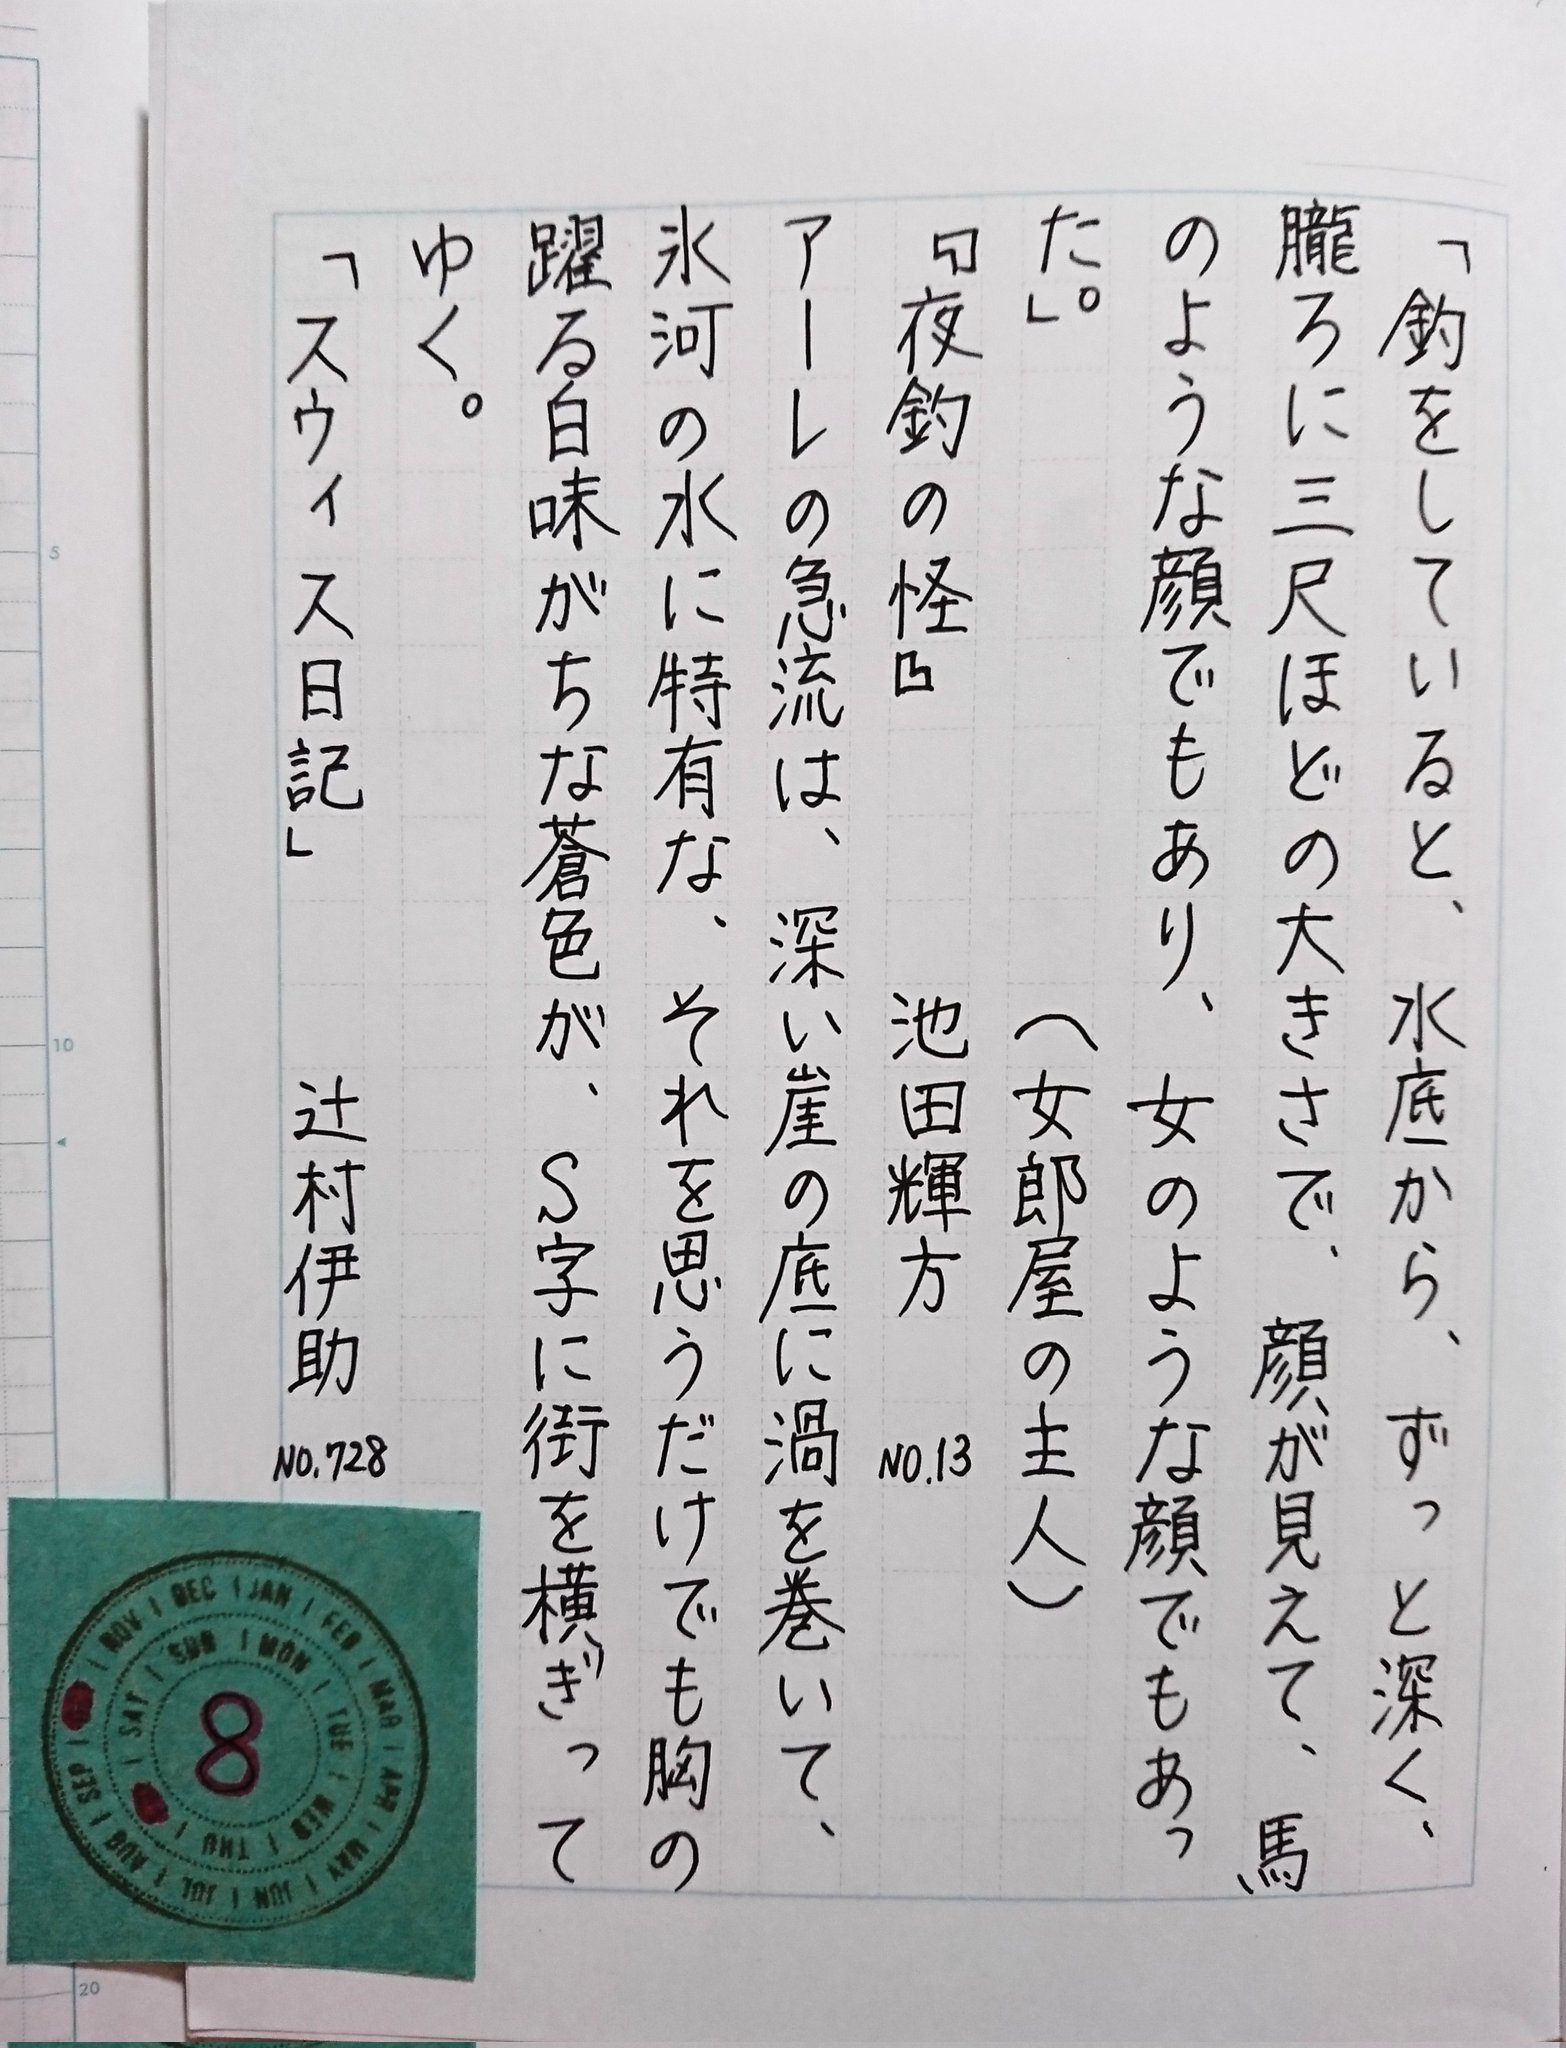 「釣をしていると、水底から、ずっと深く、
朧ろに三尺ほどの大きさで、顔が見えて、馬
のような顔でもあり、女のような顔でもあっ
た。」　（女郎屋の主人）
『夜釣の怪』　池田輝方　NO.13
アーレの急流は、深い崖の底に渦を巻いて、
氷河の水に特有な、それを思うだけでも胸の
躍る白味がちな蒼色が、S字に街を横ぎって
ゆく。
「スウィス日記」　辻村伊助　NO.728
5
10
20
JAN FEB MAR APR MAY JUN JUL AUG SEP NOV DEC
SUN MON TUE WED THU SAT
8